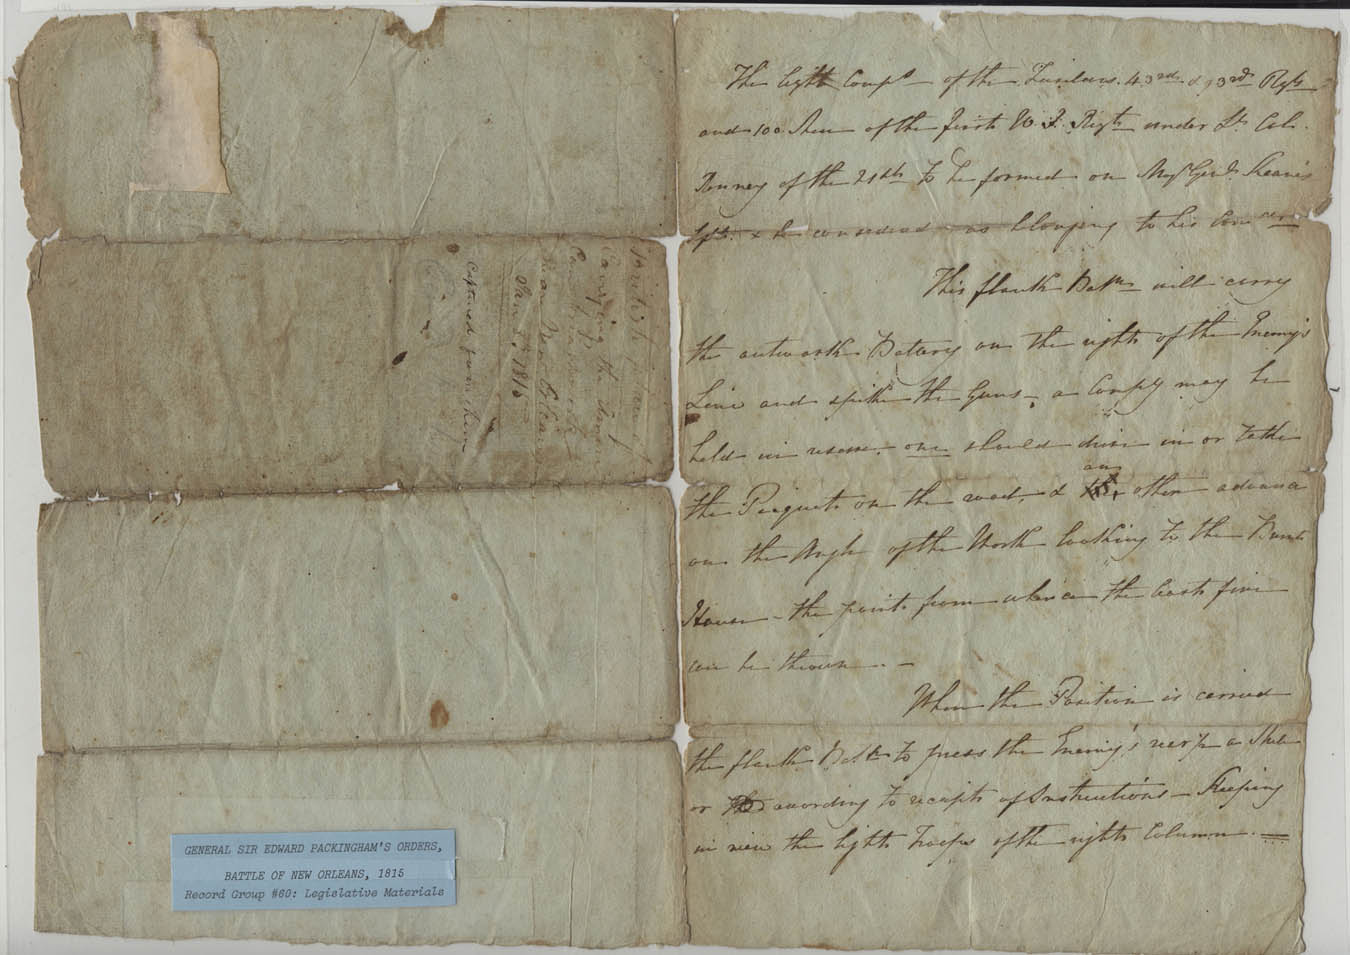 The light Comps of the Fusileers. 43rd & 93rd Regts
and 100 Men of the first W. I. Regt under Lt Col.
Renney of the 21st to be formed on Majr Genl Keane's
left. & be considered as belonging to his
This flank Battn will carry
the outwork Battery on the right of the Enemy's
Line and spike the Guns, a Compy may be
held in reserve. one should drive in or take
the Picquets on the road, & an other advance
on the Angle of the Work looking to the Burnt
House - the point from whence the best fire
can be thrown . -
When the Position is carried
the flank Battn to press the Enemy's rear for a Mile
or according to receipt of Instructions - Keeping
in view the light Troops of the right Column. =
British plan of
Carrying the American
near New Orleans
Jan 8th 1815
Captured from them
GENERAL SIR EDWARD PACKINGHAM'S ORDERS,
BATTLE OF NEW ORLEANS, 1815
Record Group #60: Legislative Materials